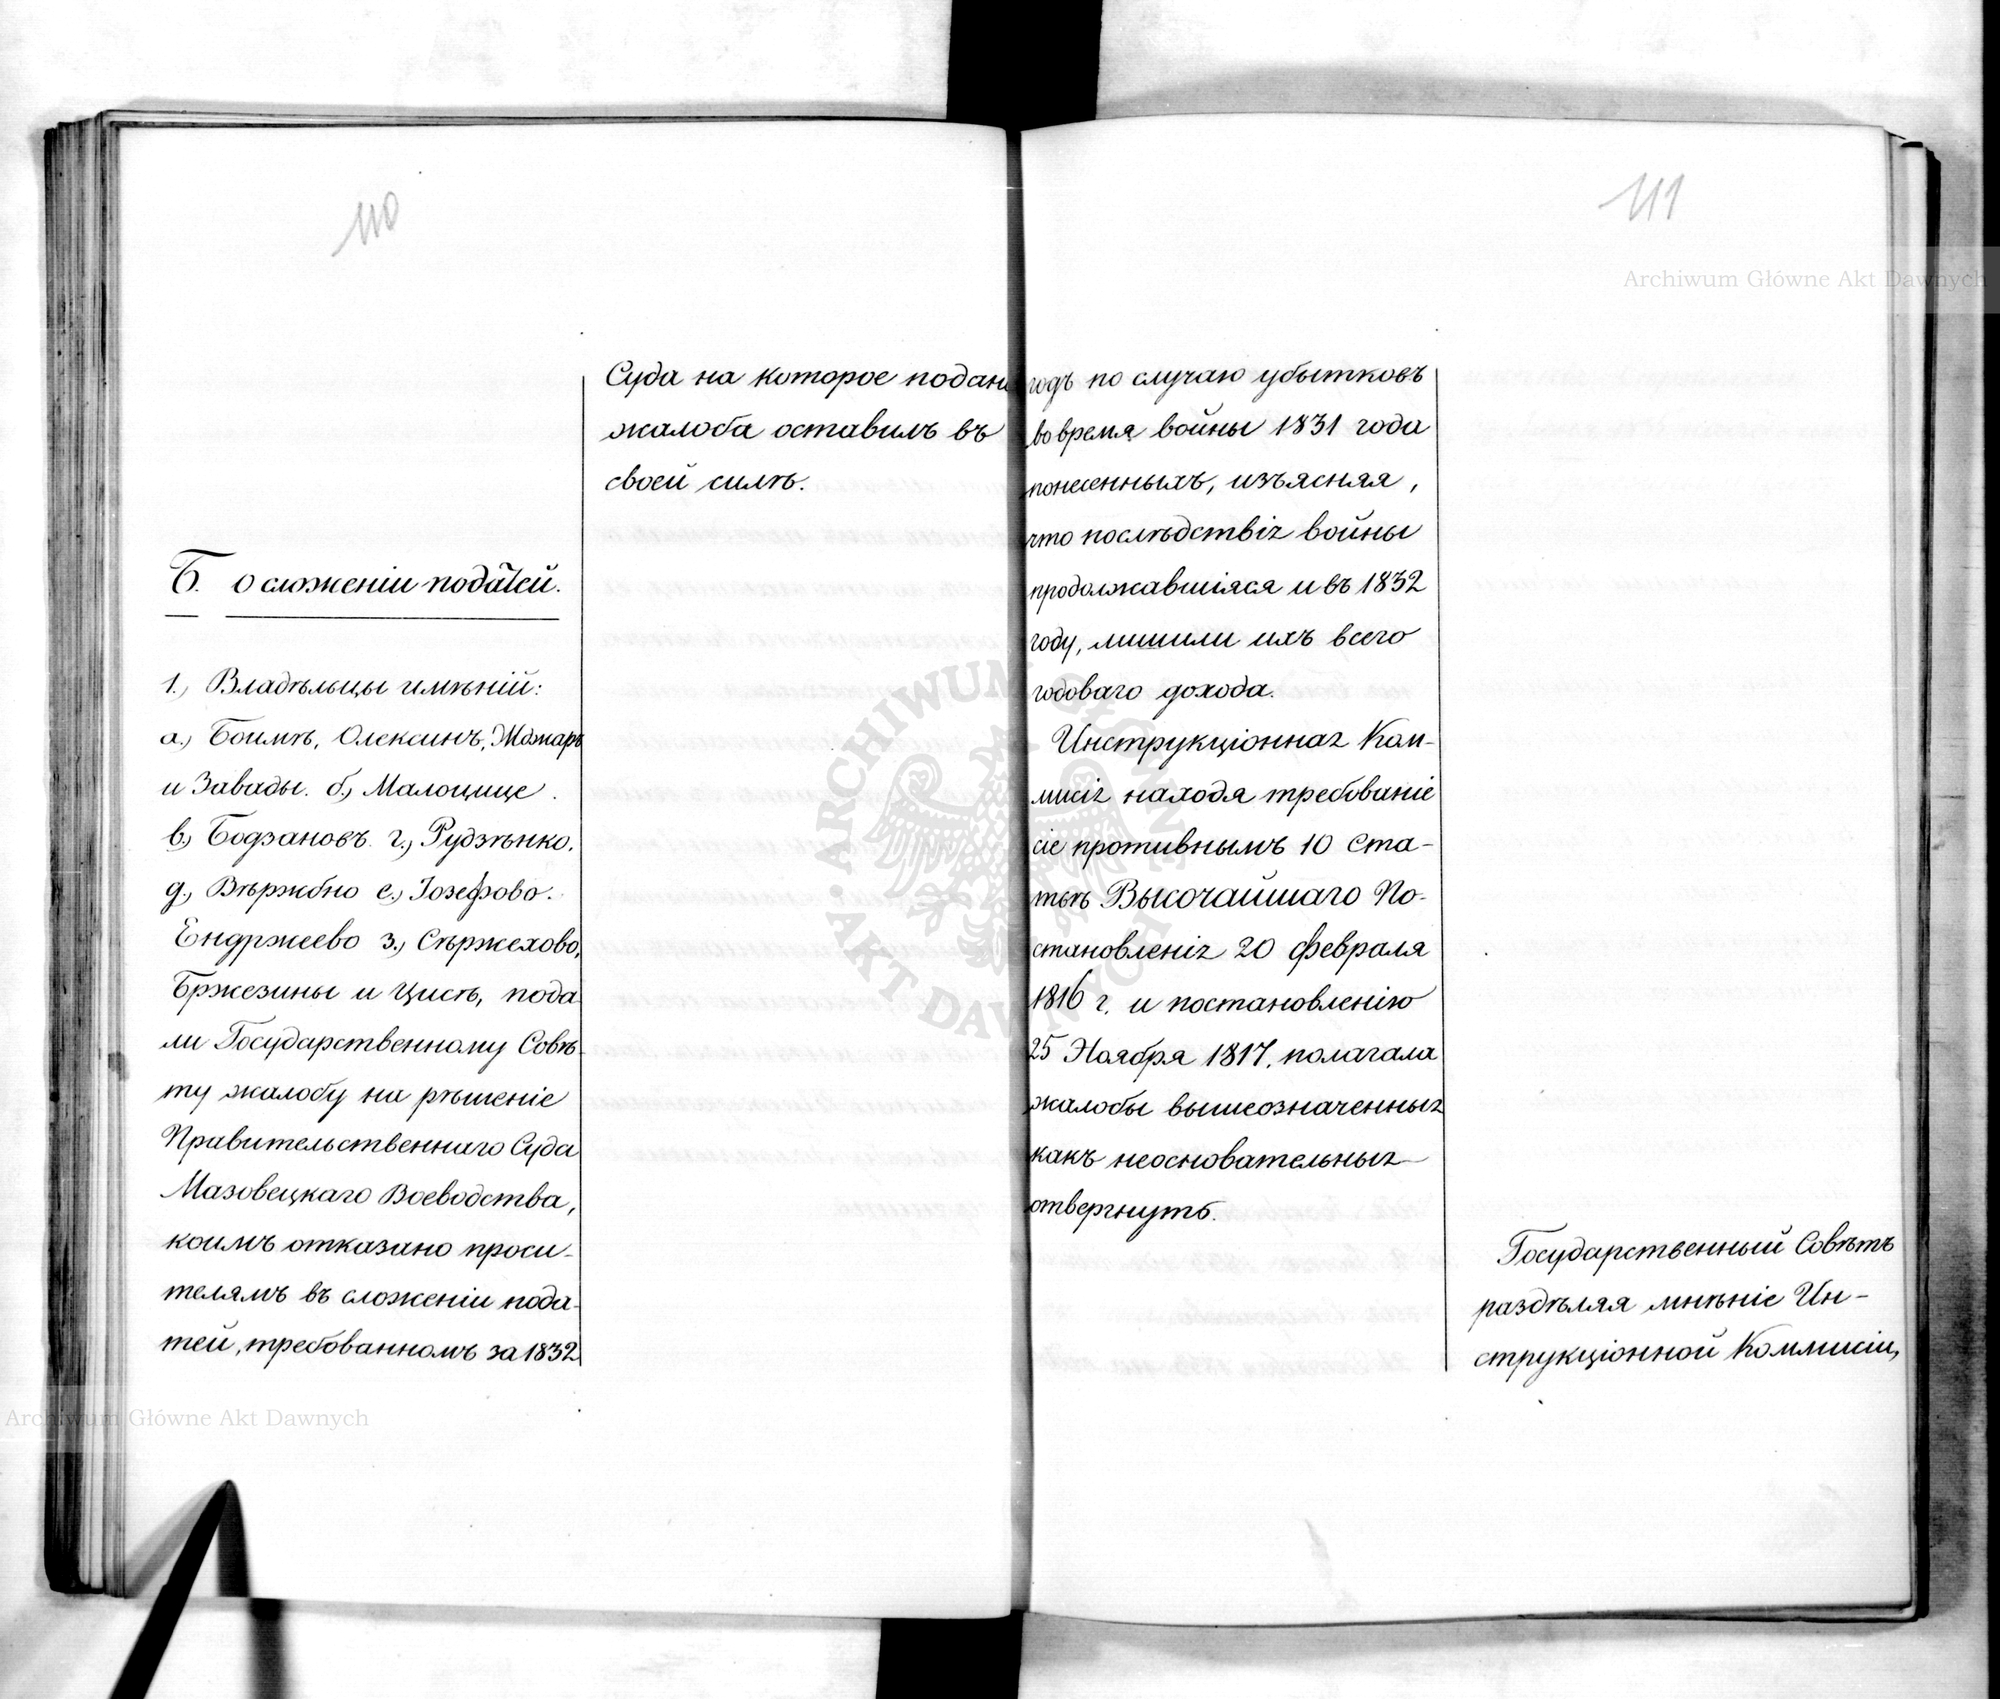 110
Суда на которое подана
жалоба оставилъ въ
своей силѣ.
Б. о сложеніи податей.
1., Владѣльцы имѣній:
а.) Боимѣ, Олексинъ, Жджаръ
и Завады. б.) Малошице.
в.) Бодзановъ. г.) Рудзѣнко.
д.) Вѣржбно е.) Іозефово.
Ендржеево з.) Сѣржехово,
Бржезины и Цисѣ, пода-
ли Государственному Совѣ-
ту жалобу на рѣшеніе
Правительственнаго Суда
Мазовецкаго Воеводства,
коимъ отказано проси-
телямъ въ сложеніи пода-
тей, требованномъ за 1832
111
годъ по случаю убытковъ
во время войны 1831 года
понесенныхъ, изъясняя,
что послѣдствія войны
продолжавшіяся и въ 1832
году, лишили ихъ всего
годоваго дохода.
Инструкціонная Ком-
мисія находя требованіе
сіе противнымъ 10 Ста-
тьѣ Высочайшаго По-
становленія 20 февраля
1816 г. и постановленію
25 Ноября 1817, полагала
жалобы вышеозначенныя
какъ неосновательныя
отвергнуть.
Государственный Совѣтъ
раздѣляя мнѣніе Ин-
струкціонной Коммисіи,
Archiwum Główne Akt Dawnych
Archiwum Główne Akt Dawnych